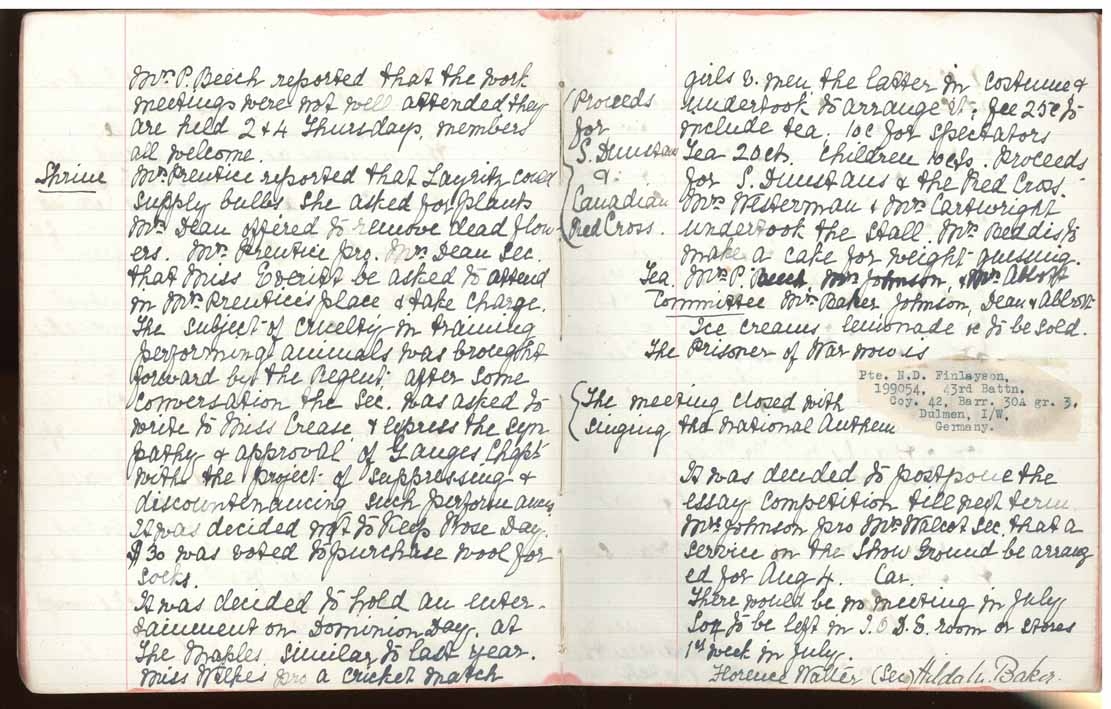 Mrs P. Beech reported that the work
meetings were not well attended they
are held 2 & 4 Thursdays, members
all welcome.
Shrine
Mrs Prentice reported that Layritz could
supply bulbs. She asked for plants
Mrs Dean offered to remove dead flow-
ers. Mrs Prentice pro. Mrs Dean Sec.
that Miss Everitt be asked to attend
in Mrs Prentice's place & take charge.
The subject of cruelty in training
performing animals was brought
forward by the Regent. after some
conversation the Sec. was asked to
write to Miss Crease & express the sym
pathy & approval of Ganges Chapt
with the project of suppressing &
discountenancing such performances
It was decided not to keep Rose Day.
$30 was voted to purchase wool for
socks.
It was decided to hold an enter-
tainment on Dominion Day. at
The Maples. similar to last year.
Miss Wilkes pro a cricket match
girls v. men, the latter in costume &
undertook to arrange it; fee 25c to
include tea. 10c for spectators
Tea 20cts. Children 10cts. Proceeds
for S. Dunstans & the Red Cross.
Mrs Westerman & Mrs Cartwright
undertook the stall. Mrs Beddis to
make a cake for weight guessing.
(Proceeds
for
S. Dunstans
&
Canadian
Red Cross.
Tea. Mrs P. Beech, Mrs Johnson, & Mrs Abbott
Committee Mrs Baker, Johnson, Dean & Abbott
Ice creams lemonade &c to be sold.
The Prisoner of War now is
Pte. N.D. Finlayson,
199054, 43rd Battn.
Coy. 42, Barr. 30A gr. 3.
Dulmen, I/W,
Germany.
(The meeting closed with
singing the National Anthem
It was decided to postpone the
essay competition till next term.
Mrs Johnson pro Mrs Walcot Sec. that a
service on the Show Ground be arrang
ed for Aug 4. Car.
There would be no meeting in July
to be left in I.O.D.E. room or stores
1st week in July.
Florence Walter (Sec) Hilda Baker.